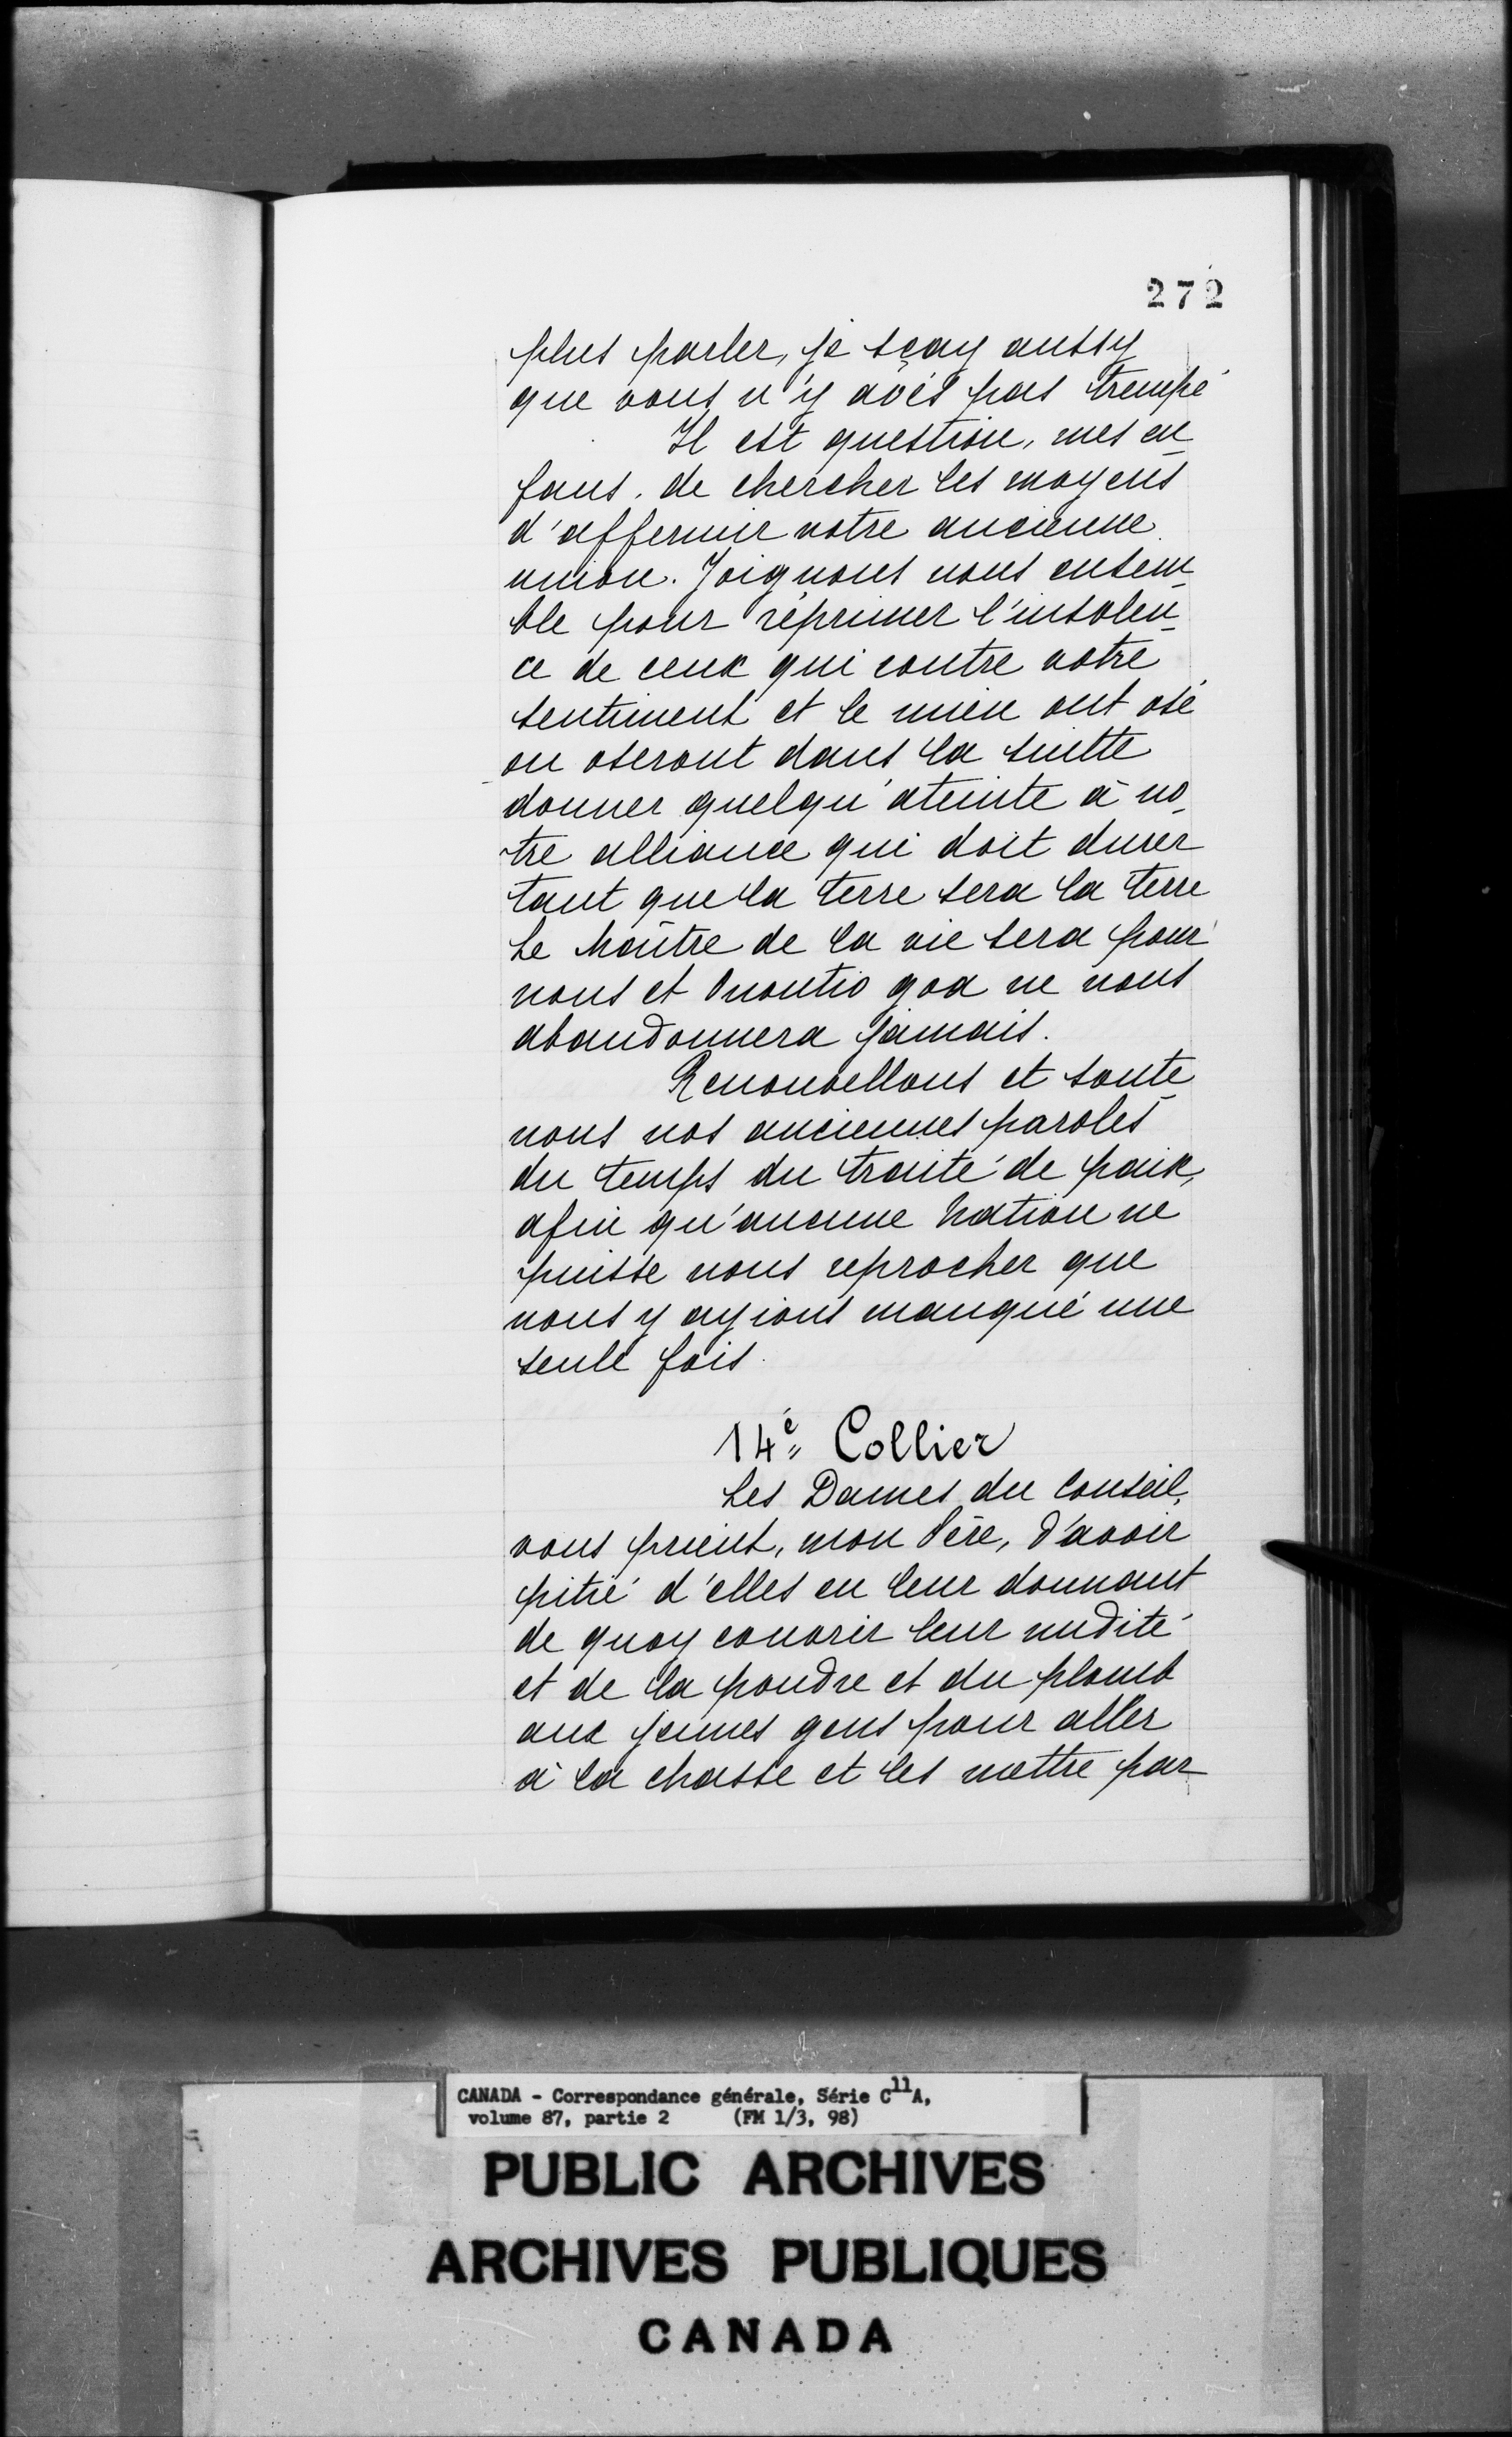 272
plus parler, je sçay aussy
que vous n'y avés pas trempé
Il est question, mes en-
fans. de chercher les moyens
d'affermir notre ancienne
union. Joignons nous ensem-
ble pour réprimer l'insolen-
ce de ceux qui contre votre
sentiment et le mien ont osé
ou oseront dans la suitte
donner quelqu'ateinte à no-
tre alliance qui doit durer
tant que la terre sera la terre
Le Maître de la vie sera pour
nous et Onontio goa ne nous
abandonnera jamais.
Renouvellons et soute-
nons nos anciennes paroles
du temps du traité de paix,
afin qu'aucune Nation ne
puisse nous reprocher que
nous y ayions manqué une
seule fois.
14e" Collier
Les Dames du Conseil,
vous prient, mon Père, d'avoir
pitié d'elles en leur donnant
de quoy couvrir leur nudité
et de la poudre et du plomb
aux jeunes gens pour aller
à la chasse et les mettre par
CANADA - Correspondance générale, Série C11A,
volume 87, partie 2 (FM 1/3, 98)
PUBLIC ARCHIVES
ARCHIVES PUBLIQUES
CANADA